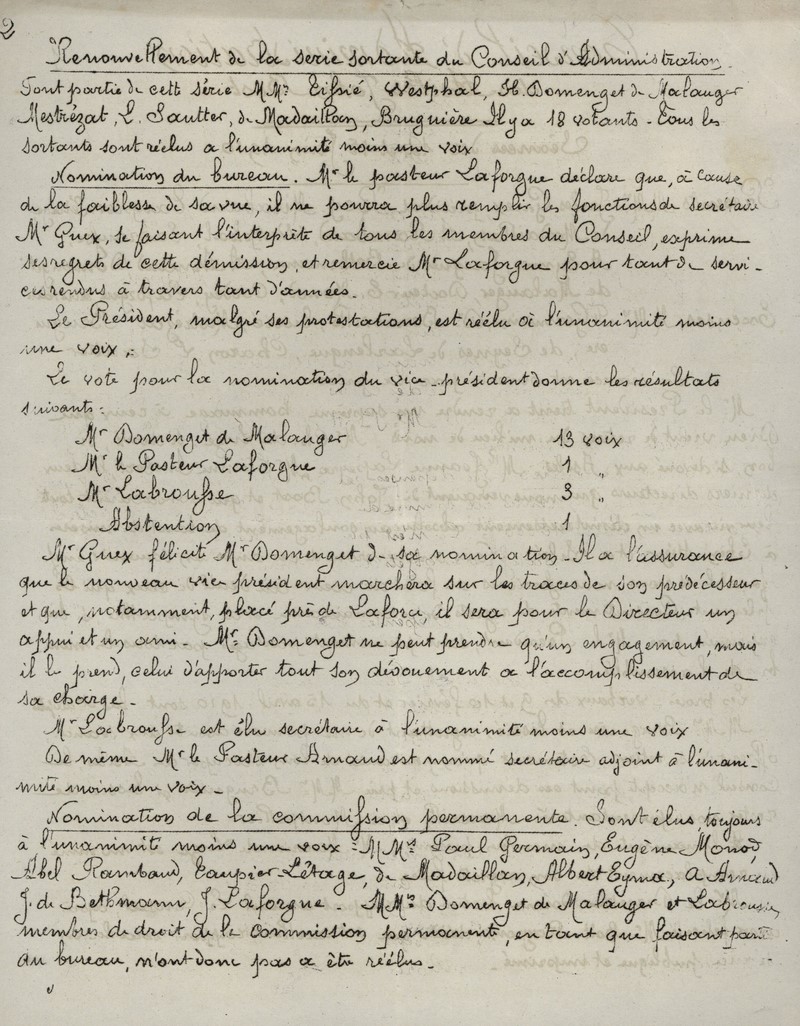 2
Renouvellement de la serie sortante du Conseil d'Administration.
Font partie de cette série MMrs Eissié, Westphal, H. Domenget de Malauger
Mestrézat, L. Sautter, de Madaillan, Bruguière Il y a 18 votants - Tous les
sortants sont réélus a l'unanimité moins une voix
Nomination du bureau. Mr le pasteur Laforgue déclare que, à cause
de la faiblesse de sa vue, il ne pourra plus remplir les fonctions de secrétaire
Mr Guex, se faisant l'interprète de tous les membres du Conseil, exprime
ses regrets de cette démission, et remercie Mr Laforgue pour tant de servi-
ces rendus à travers tant d'années.
Le Président, malgré ses protestations, est réélu à l'unanimité moins
une voix.
Le vote pour la nomination du vice-président donne les résultats
suivants:
Mr Domenget de Malauger 13 voix
Mr le Pasteur Laforgue 1 "
Mr Labrousse 3 "
Abstention 1
Mr Guex félicite Mr Domenget de sa nomination - Il a l'assurance
que le nouveau vice président marchera sur les traces de son prédécesseur
et que, notamment, placé près de Laforce, il sera pour le Directeur un
appui et un ami - Mr Domenget ne peut prendre qu'un engagement, mais
il le prend, celui d'apporter tout son dévouement a l'accomplissement de
sa charge -
Mr Labrousse est élu secrétaire à l'unanimité moins une voix
De même Mr le Pasteur Arnaud est nommé secrétaire adjoint à l'unani-
mité moins une voix -
Nomination de la commission permanente. Sont élus, toujours
à l'unanimité moins une voix: MMrs Paul Germain, Eugène Monod,
Abel Rambaud, Taupier-Létage, de Madaillan, Albert Eyma, A Arnaud
J. de Bethmann, J. Laforgue - MMrs Domenget de Malauger et Labrousse,
membres de droit de la commission permanente, en tant que faisant partie
du bureau, n'ont donc pas a être réélus -